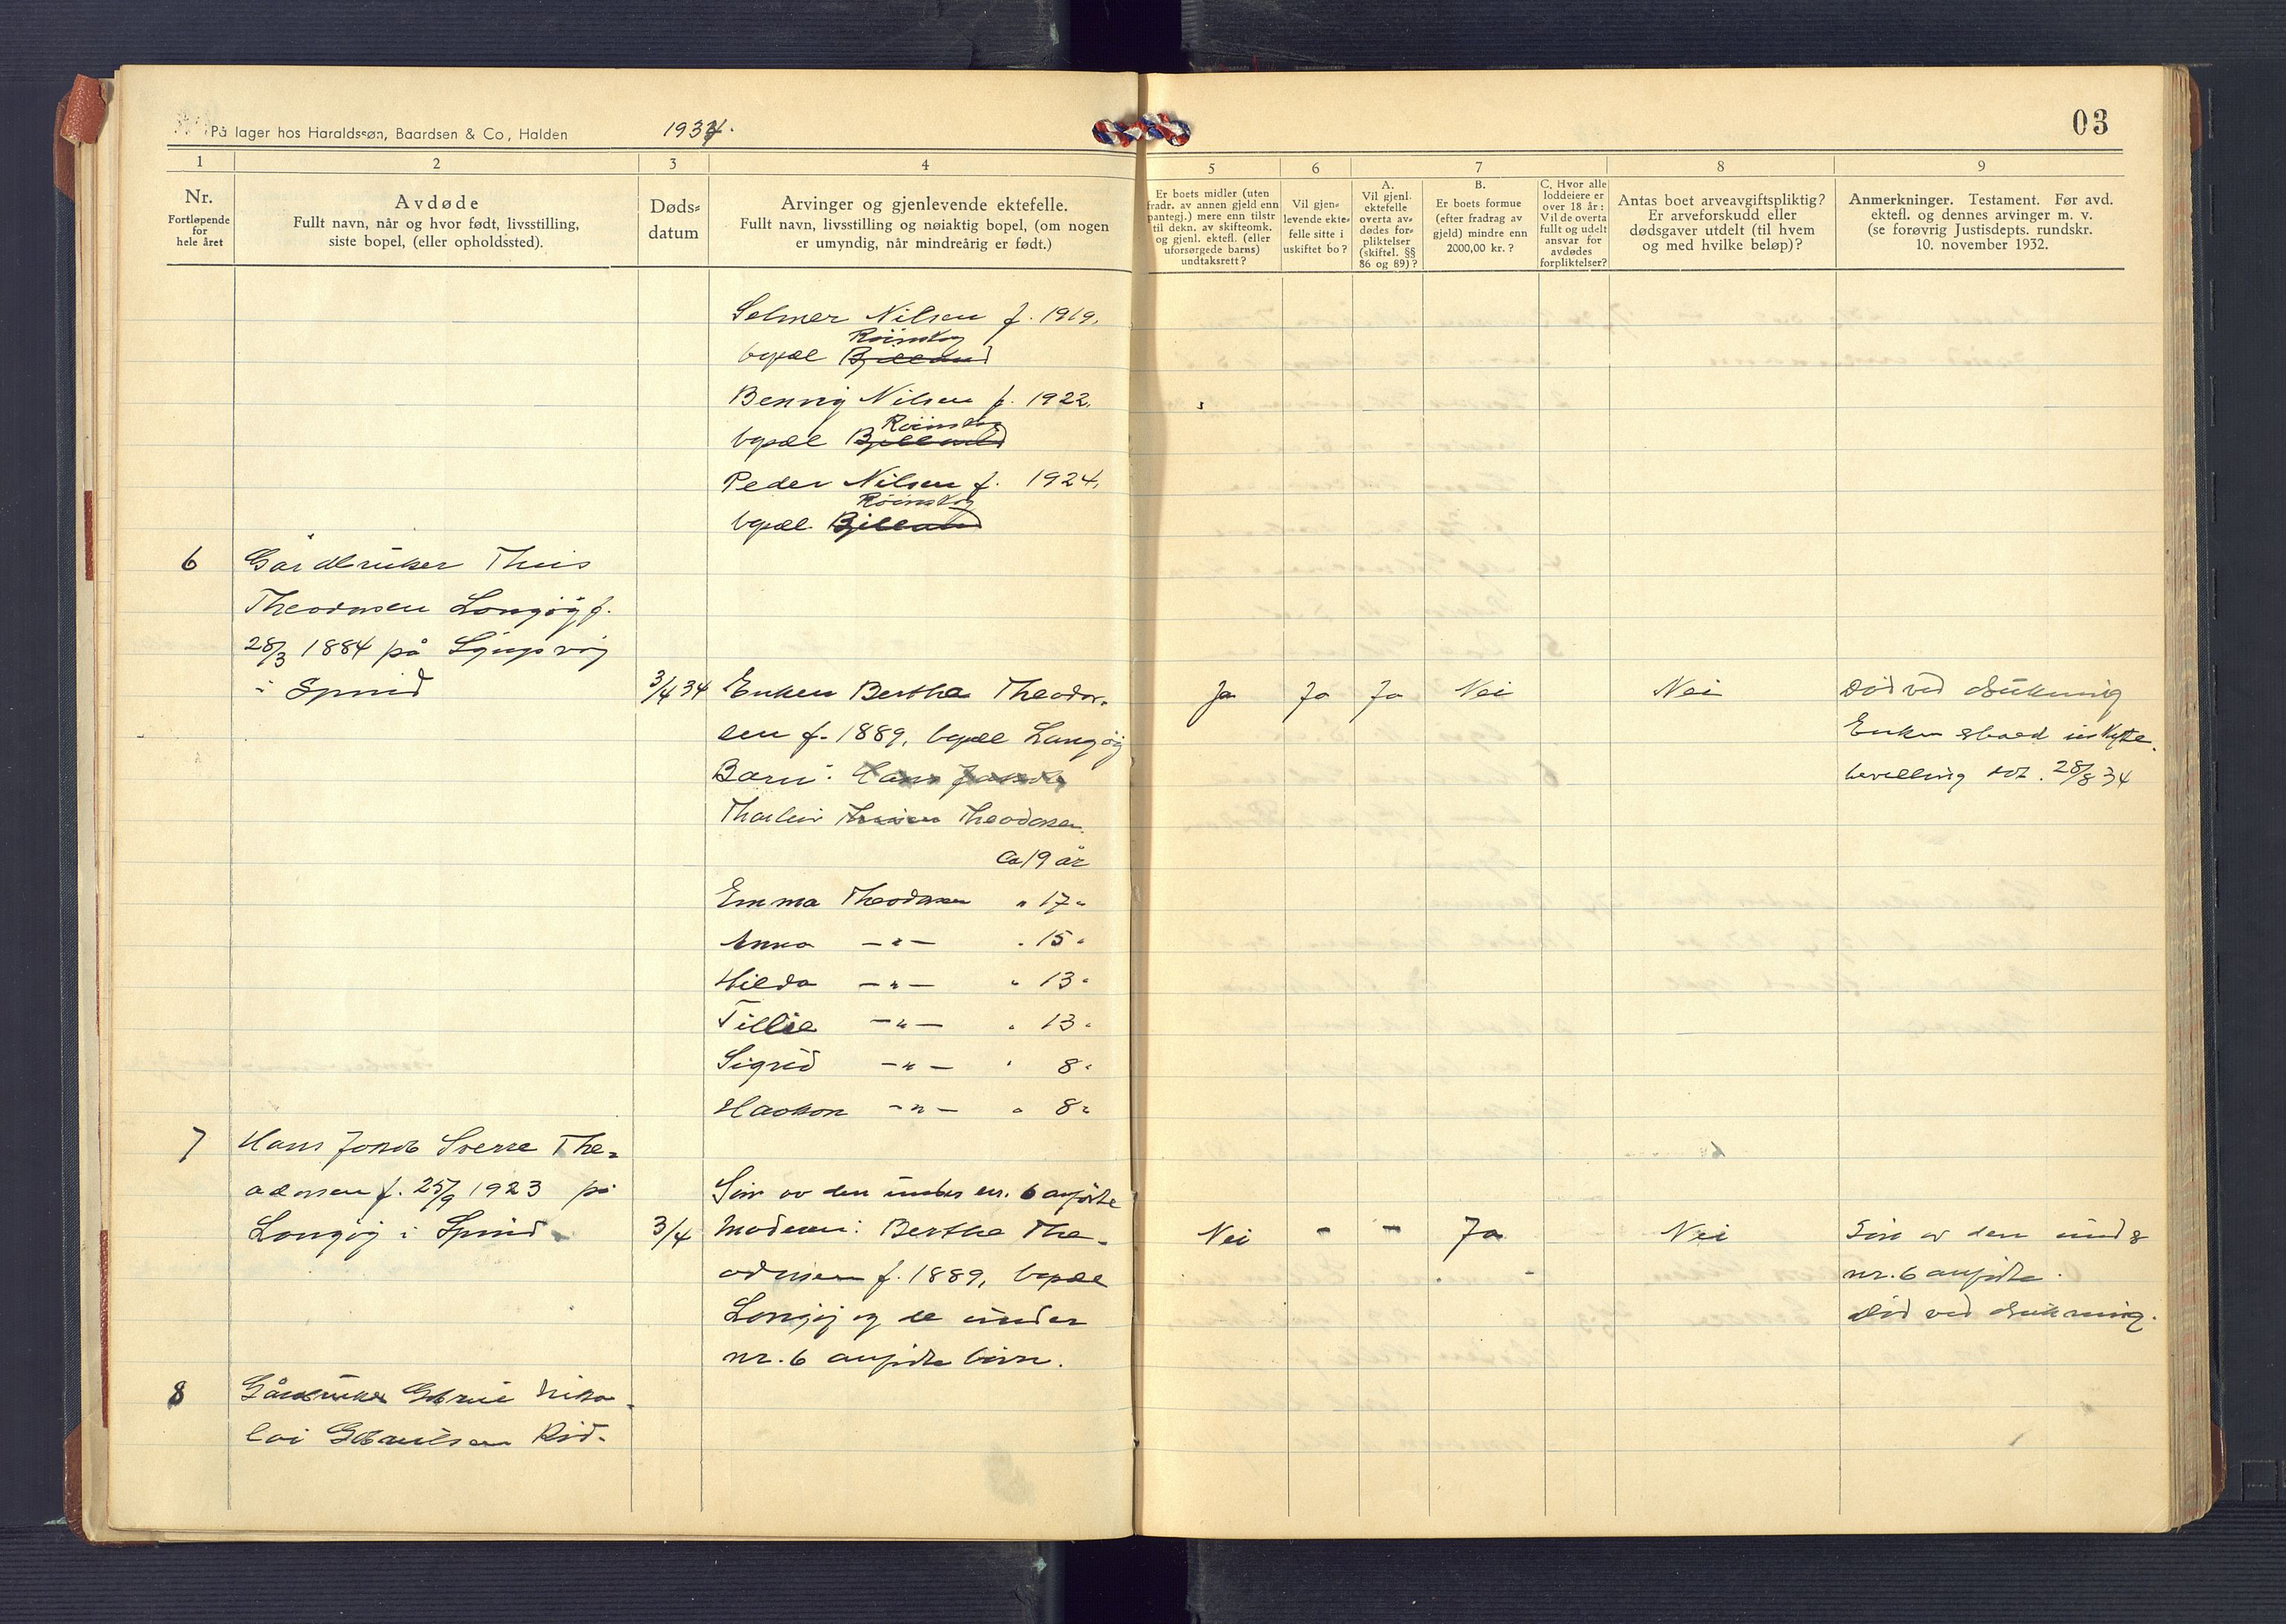 På lager hos Haraldssøn, Baardsen & Co, Halden
1934.
03
1 2 3 4 5 6 7 8 9
Nr.
Fortløpende
for
hele året
Avdøde
Fullt navn, når og hvor født, livsstilling,
siste bopel, (eller opholdssted).
Døds-
datum
Arvinger og gjenlevende ektefelle.
Fullt navn, livsstilling og nøiaktig bopel, (om nogen
er umyndig, når mindreårig er født.)
Er boets midler (uten
fradr. av annen gjeld enn
pantegj.) mere enn tilstr
til dekn. av skifteomk.
og gjenl. ektefl. (eller
uforsørgede barns)
undtaksrett?
Vil gjen-
levende ekte-
felle sitte i
uskiftet bo?
A.
Vil gjenl.
ektefelle
overta av-
dødes for-
pliktelser
(skiftel. §§
86 og 89)?
B.
Er boets formue
(efter fradrag av
gjeld) mindre enn
2000,00 kr.?
C. Hvor alle
loddeiere er
over 18 år:
Vil de overta
fullt og udelt
ansvar for
avdødes
forpliktelser?
Antas boet arveavgiftspliktig?
Er arveforskudd eller
dødsgaver utdelt (til hvem
og med hvilke beløp)?
Anmerkninger. Testament. Før avd.
ektefl. og dennes arvinger m. v.
(se forøvrig Justisdepts. rundskr.
10. november 1932.
Selmer Nilsen f. 1919.
Röinskog
bopæl Bjelland
Benvig Nilsen f. 1922.
Röinskog
bopæl Bjelland
Peder Nilsen f. 1924.
Röinskog
bopæl Bjelland
6 Gårdbruker Thuis
Theodorsen Langöy f.
28/3 1884 på
i Spind 3/4 34 Enken Bertha Theodor- Ja Ja Ja Nei Nei Död ved drukning
sen f. 1889, bopæl Langöy Enken skifte-
Barn: Hans Jakob bevilling dat. 28/8 34
Thorleiv Theodorsen
Ca 19 år
Emma Theodorsen " 17 "
Anna —"— " 15 "
Hilda —"— " 13 "
Tillie —"— " 13 "
Sigrid —"— " 8 "
Haakon —"— " 8 "
7 Hans Jakob Sverre The-
odorsen f. 25/9 1923 på Sön av den under nr. 6 anförte
Langöy i Spind 3/4 Moderen: Bertha The- Nei - - Ja Nei Sön av den under
odorsen f. 1889, bopæl nr. 6 anförte.
Langöy og de under Död ved drukning.
nr. 6 anförte börn.
8 Gårdbruker Gabriel Niko-
lai Gabrielsen Röd-